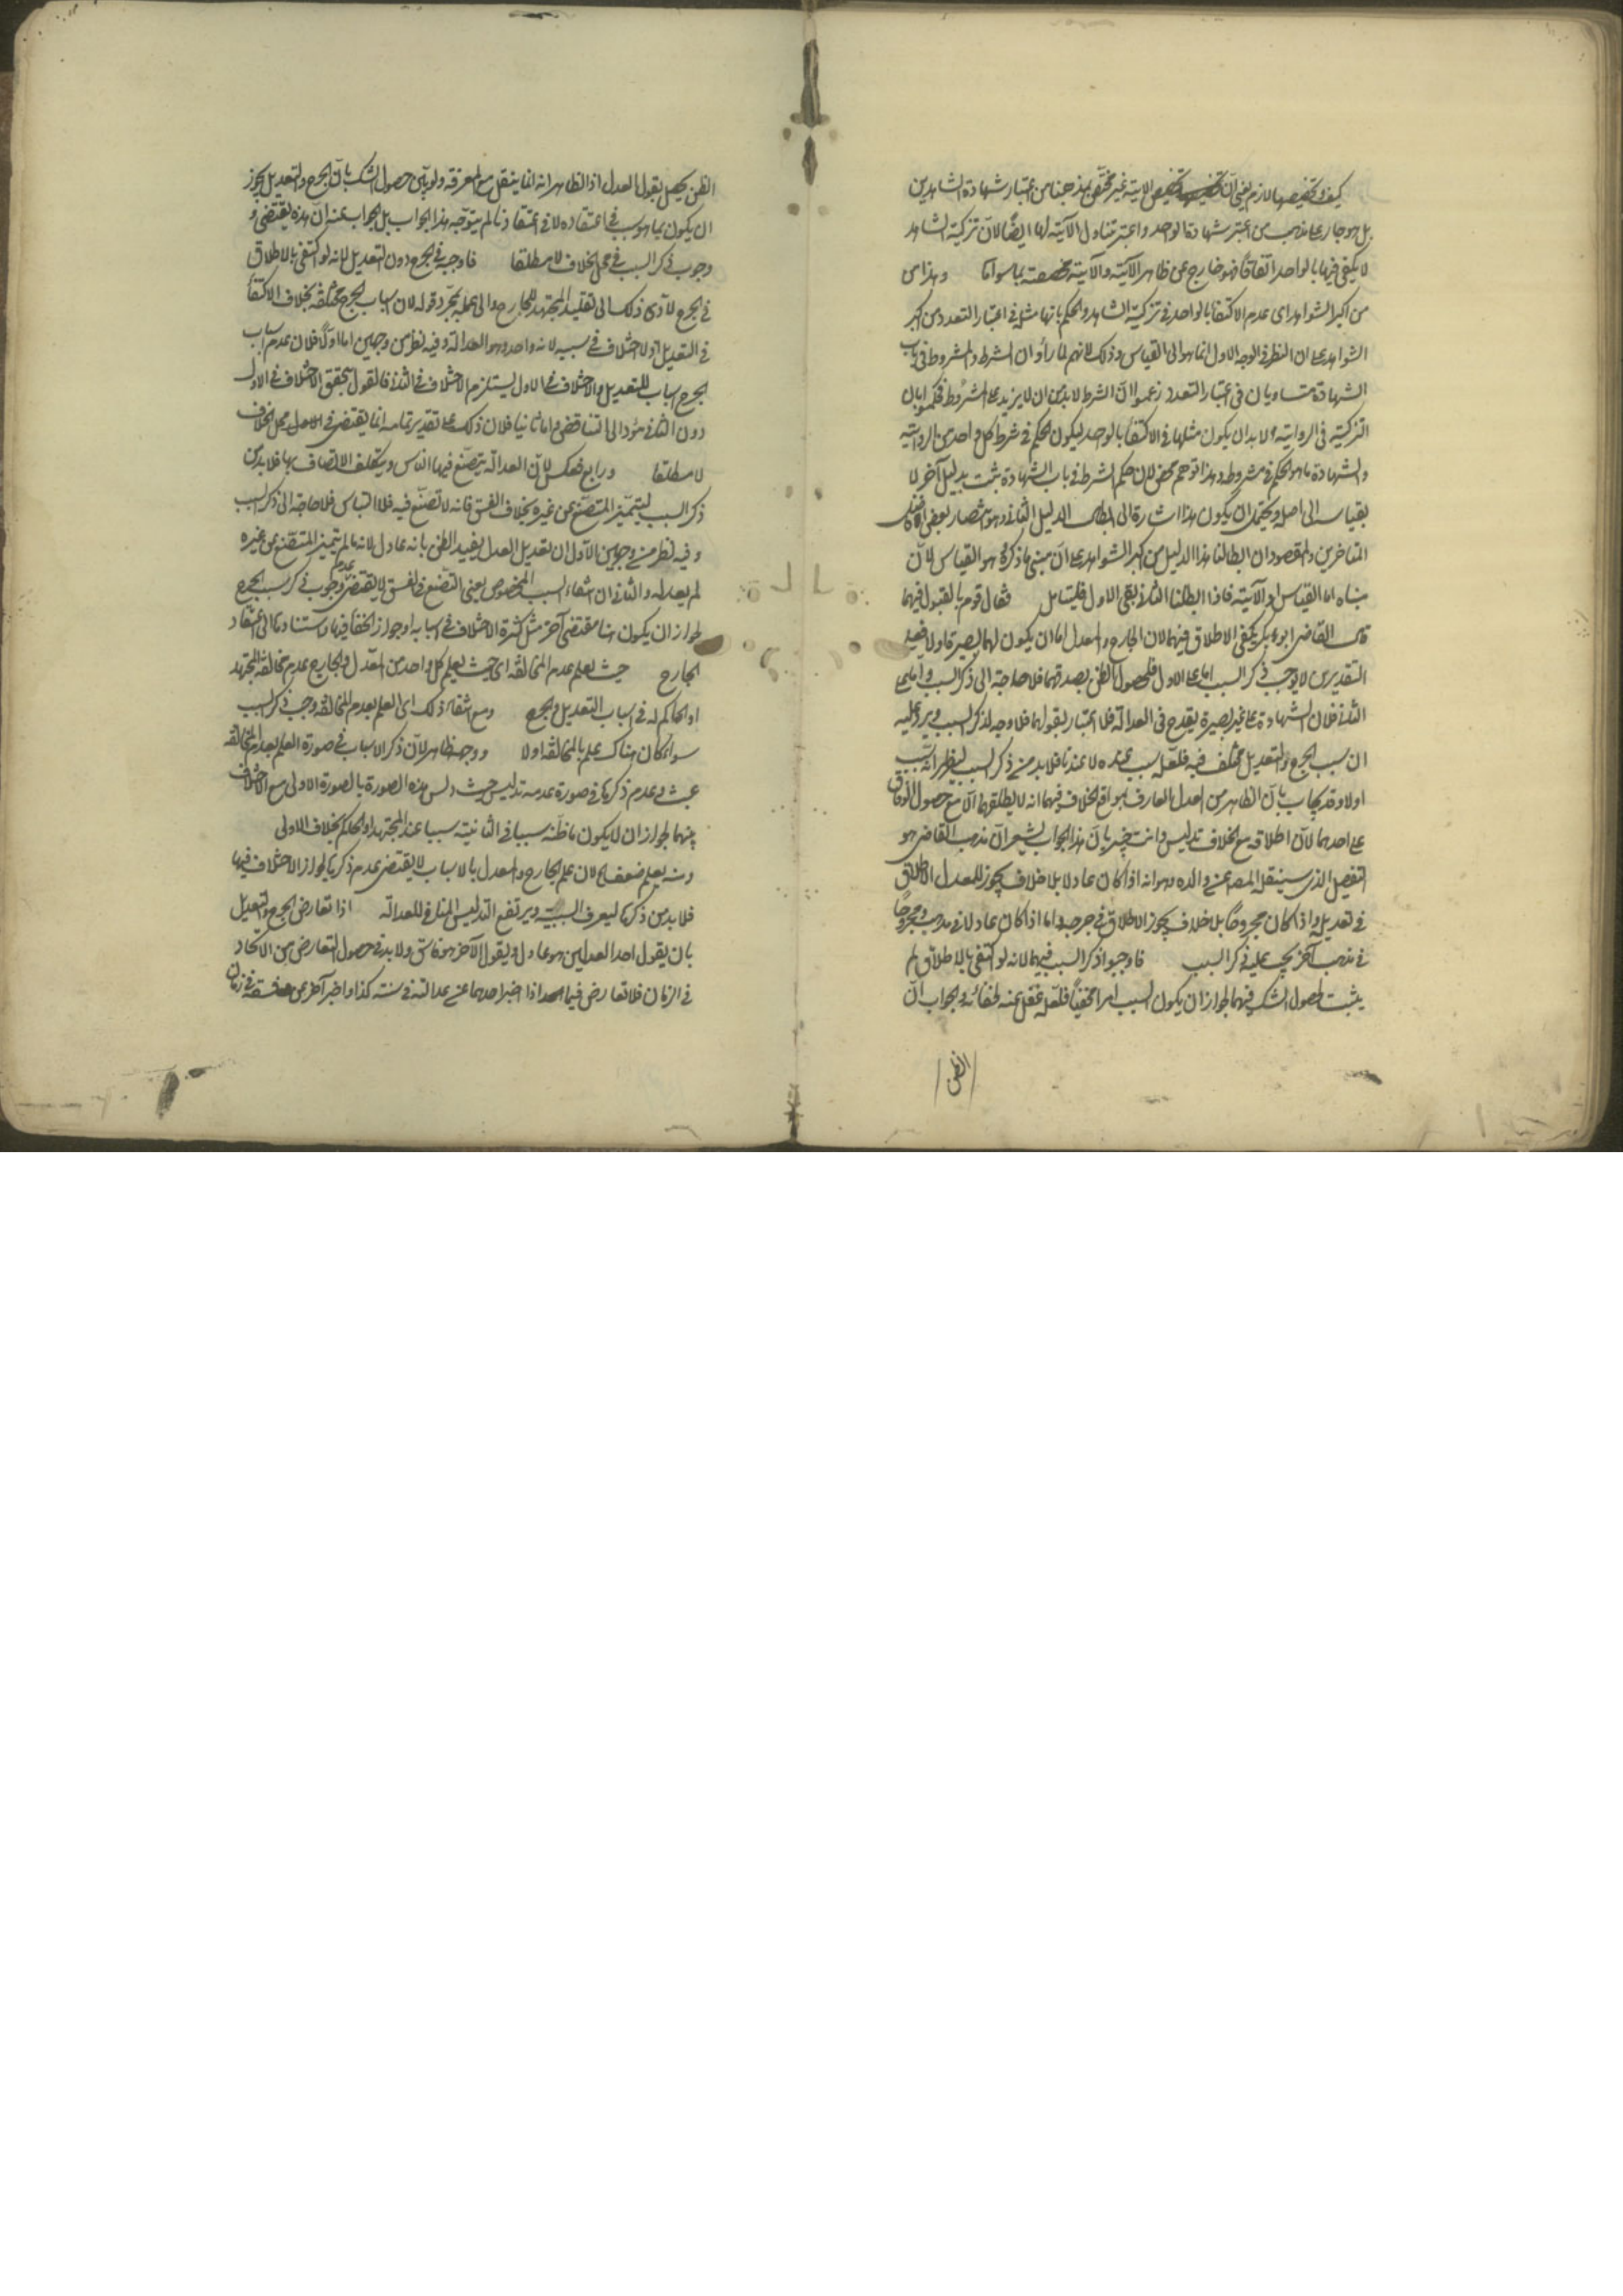 كيف وتخصيصها لازم يعني انّ تخصيص الآية غير مختصّ بمذهبنا من اعتبار شهادة الشاهدين
بل هو جار على مذهب من اعتبر شهادة الواحد واعتبر تناول الآية لها ايضًا لانّ تزكية الشاهد
لا يكفي فيها بالواحد اتفاقًا فهو خارج عن ظاهر الآية والآية مخصصة بما سواها وهذا من
من اكبر الشواهد اى عدم الاكتفاء بالواحد في تزكية الشاهد والحكم بانها مثل في اعتبار التعدد من اكبر
الشواهد على ان النظر في الوجه الاول انما هو الى القياس وذلك لانهم لما رأوا ان الشرط والمشروط في باب
الشهادة متساويان في اعتبار التعدد زعموا انّ الشرط لا بد من ان لا يزيد على المشروط فحكموا بان
التزكية في الرواية لا بد ان يكون مثلها في الاكتفاء بالواحد ليكون الحكم في شرط كل واحد من الرواية
والشهادة ما هو الحكم في مشروطه وهذا توهم محض لان حكم الشرط في باب الشهادة يثبت بدليل آخر لا
بقياسه الى اصل ويحتمل ان يكون هذا اشارة الى ابطال الدليل الثاني وهو مختصار بعض افاضل
المتاخرين والمقصود ان ابطالنا هذا الدليل من اكبر الشواهد على انّ مبنى ما ذكره هو القياس لانّ
مبناه اما القياس او الآية فاذا ابطلنا الثاني بقى الاول فليتامل فقال قوم بالقبول فيهما
قال القاضي ابو بكر يكفي الاطلاق فيهما لان الجارح والمعدل اما ان يكون لهما بصيرة او لا فعلى
التقديرين لا يجب ذكر السبب اما على الاول فلحصول الظن بصدقهما فلا حاجة الى ذكر السبب واما على
الثاني فلان الشهادة على غير بصيرة يقدح في العدالة فلا اعتبار بقولهما فلا وجه لذكر السبب ويرد عليه
ان سبب الجرح والتعديل مختلف فيه فلعله سبب عنده لا عندنا فلا بد من ذكر السبب ليظهر انه سبب
او لا وقد يجاب بانّ الظاهر من العدل العارف بمواقع الخلاف فيهما انه لا يطلقهما الا مع حصول الوفاق
على احدهما لانّ اطلاقه مع الخلاف تدليس وانت خبير بانّ هذا الجواب يشعر انّ مذهب القاضي هو
التفصيل الذي سينقله المصـ عن والده وهو انه اذا كان عادلا بلا خلاف يجوز للمعدل الاطلاق
في تعديله واذا كان مجروحًا بلا خلاف يجوز الاطلاق في جرحه واما اذا كان عادلا في مذهب ومجروحًا
في مذهب آخر يجب عليه ذكر السبب فاوجبوا ذكر السبب فيهما لانه لو اكتفى بالاطلاق لم
يثبت لحصول الشك فيهما لجواز ان يكون السبب امرا مخفيًا فلعله غفل عنه لخفائه والجواب انّ
الظن
الظن يحصل بقول العدل اذ الظاهر انه انما ينقل مع المعرفة ولو بيّن حصول الشك بانّ الجرح والتعديل يجوز
ان يكون بما هو سبب في اعتقاده لا في اعتقادنا لم يتوجه هذا الجواب بل الجواب عنه انّ هذه يقتضى
وجوب ذكر السبب في محل الخلاف لا مطلقا فاوجبه في الجرح دون التعديل لانه لو اكتفى بالاطلاق
في الجرح لادّى ذلك الى تقليد المجتهد للجارح والى عمله بمجرّد قوله لان اسباب الجرح مختلفة بخلاف الاكتفاء
في التعديل اذ لا اختلاف في سببه لانه واحد وهو العدالة وفيه نظر من وجهين اما اولاً فلان عدم اسباب
الجرح اسباب للتعديل والاختلاف في الاول يستلزم الاختلاف في الثاني فالقول بتحقق الاختلاف في الاول
دون الثاني مؤد الى التناقض واما ثانيا فلان ذلك على تقدير تمامه انما يقتضى في الاول محل الخلاف
لا مطلقا ورابع فعكس لانّ العدالة يتصنّع فيها الناس ويتكلف الاتصاف بها فلا بد من
ذكر السبب ليتميّز المتصنّع عن غيره بخلاف الفسق فانه لا تصنّع فيه فلا التباس فلا حاجة الى ذكر السبب
وفيه نظر من وجهين الاول ان تعديل العدل يفيد الظن بانه عادل لانه ما لم يتميز المتصنع عن غيره
لم يعدله والثاني ان انتفاء السبب المخصوص يعني التصنع في الفسق لا يقتضى عدم وجوب ذكر سبب الجرح
لجواز ان يكون هنا مقتضى آخر مثل كثرة الاختلاف في اسبابه او جواز الخفاء فيها واستنادها الى اعتقاد
الجارح حيث يعلم عدم المخالفة اى حيث يعلم كل واحد من المعدّل والجارح عدم مخالفة المجتهد
او الحاكم له في اسباب التعديل والجرح ومع انتفاء ذلك اى العلم بعدم المخالفة وجب ذكر السبب
سواء كان هناك علم بالمخالفة او لا ووجهه ظاهر لانّ ذكر الاسباب في صورة العلم بعدم المخالفة
عبث وعدم ذكرها في صورة عدمه تدليس حيث دلس هذه الصورة بالصورة الاولى مع الاختلاف
بينهما لجواز ان لا يكون ما ظنّه سببا في الثانية سببا عند المجتهد او الحاكم بخلاف الاولى
ومنه يعلم ضعف لان علم الجارح والمعدل بالاسباب لا يقتضى عدم ذكرها لجواز الاختلاف فيها
فلا بد من ذكرها ليعرف السببيّة ويرتفع التدليس المنافي للعدالة اذا تعارض الجرح والتعديل
بان يقول احد العدلين هو عادل ويقول الآخر هو فاسق ولا بد في حصول التعارض من الاتحاد
في الزمان فلا تعارض فيما اذا اخبر احدهما عن عدالته في سنة كذا واخبر آخر عن فسقه في زمان